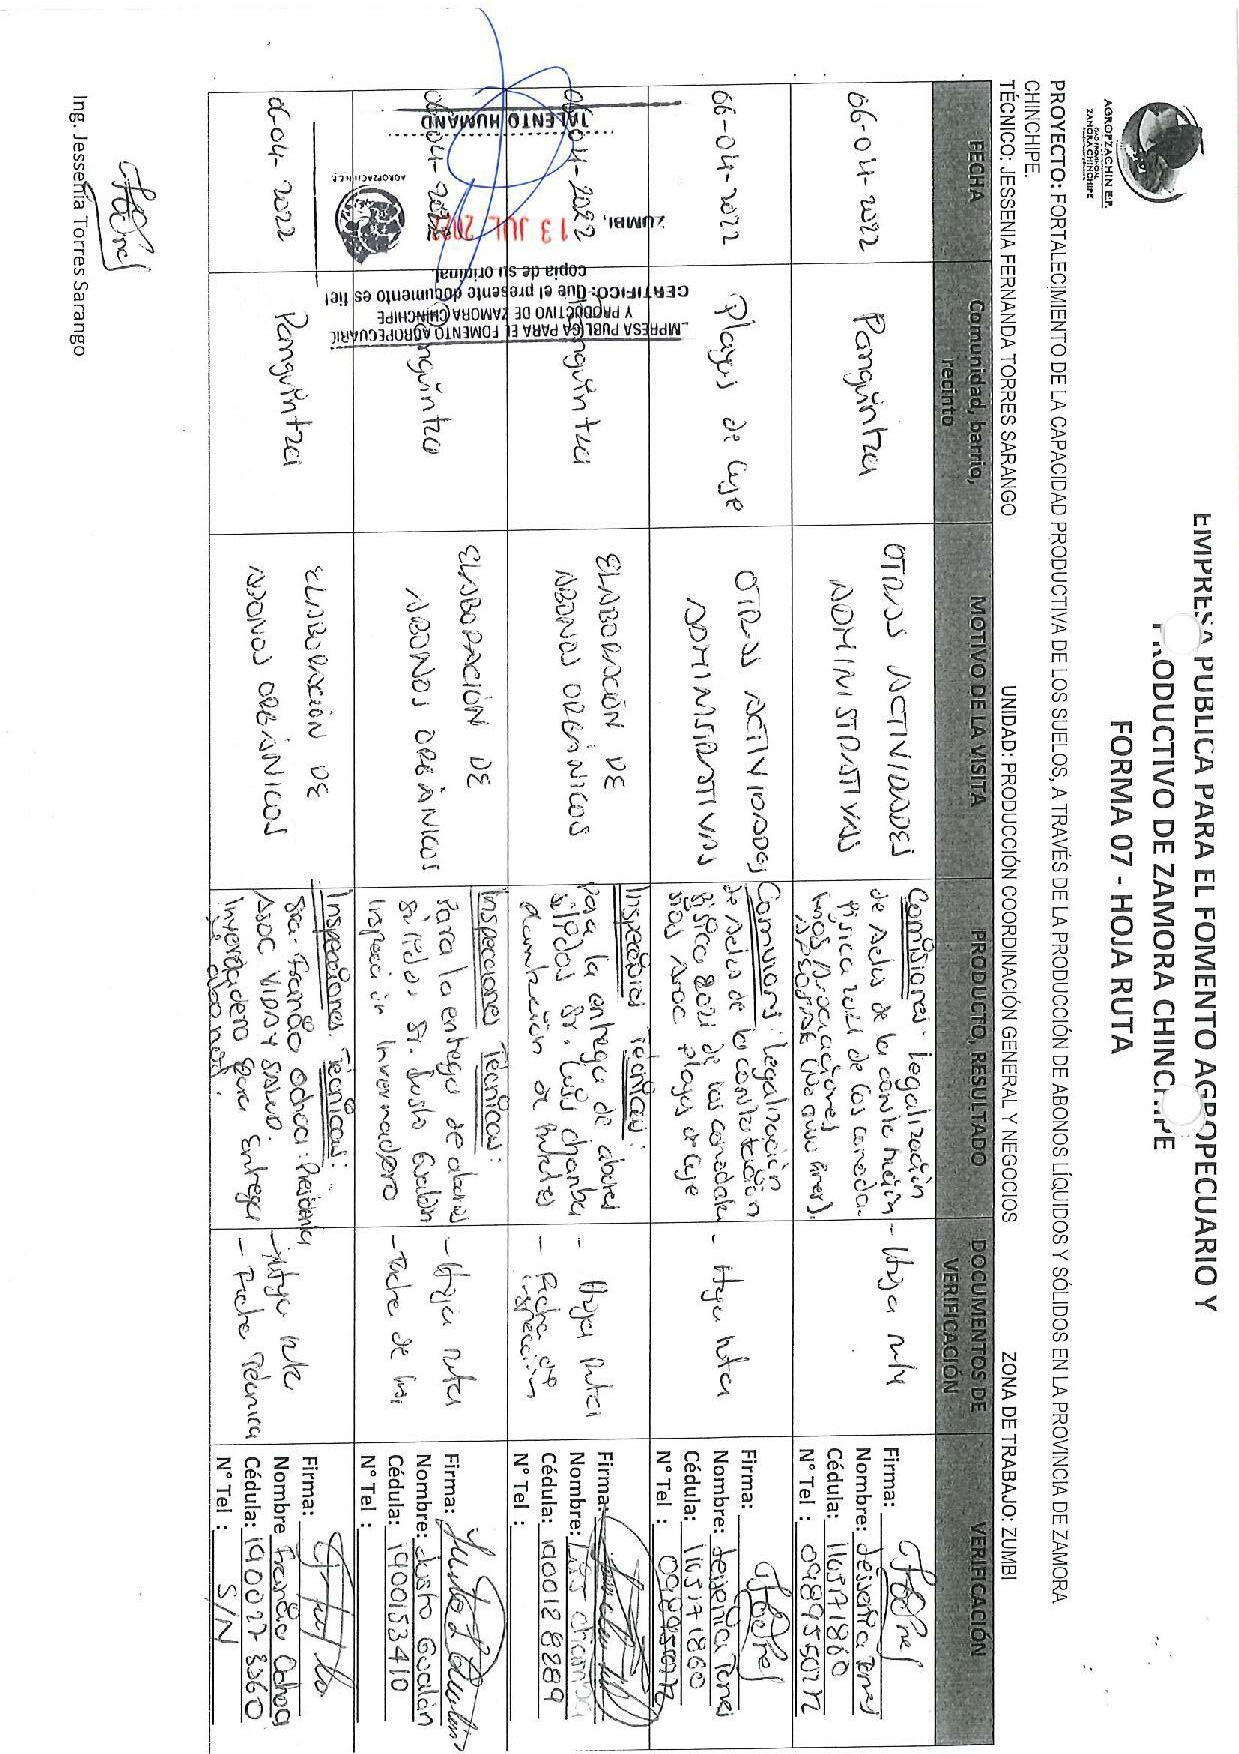 AGROPZACHIN E.P.
GAD PROVINCIAL
ZAMORA CHINCHIPE
EMPRESA PUBLICA PARA EL FOMENTO AGROPECUARIO Y
PRODUCTIVO DE ZAMORA CHINCHIPE
FORMA 07 - HOJA RUTA
PROYECTO: FORTALECIMIENTO DE LA CAPACIDAD PRODUCTIVA DE LOS SUELOS, A TRAVÉS DE LA PRODUCCIÓN DE ABONOS LÍQUIDOS Y SÓLIDOS EN LA PROVINCIA DE ZAMORA
CHINCHIPE.
TÉCNICO: JESSENIA FERNANDA TORRES SARANGO UNIDAD: PRODUCCIÓN COORDINACIÓN GENERAL Y NEGOCIOS ZONA DE TRABAJO: ZUMBI
FECHA
Comunidad, barrio,
recinto
MOTIVO DE LA VISITA
PRODUCTO, RESULTADO
DOCUMENTOS DE
VERIFICACIÓN
VERIFICACIÓN
06-04-2022
Panguintza
OTRAS ACTIVIDADES
ADMINISTRATIVAS
Comisiones: Legalización
de Actas de la
física 2021 de los
Asociaciones
- Hoja ruta
Firma:
Nombre: Jessenia Torres
Cédula: 1105171860
N° Tel : 0989550272
06-04-2022
Playas de Cuje
OTRAS ACTIVIDADES
ADMINISTRATIVAS
Comisiones: Legalización
de Actas de la contratación
física 2021 de los
Asoc playas de Cuje
- Hoja ruta
Firma:
Nombre: Jessenia Torres
Cédula: 1105171860
N° Tel : 0989550272
06-04-2022
Panguintza
ELABORACIÓN DE
ABONOS ORGÁNICOS
Inspecciones Técnicas:
Para la entrega de abonos
sólidos Sr. Luis Chamba
- Hoja Ruta
- Ficha de
inspección
Firma:
Nombre: Luis Chamba
Cédula: 1900128289
N° Tel :
06-04-2022
Panguintza
ELABORACIÓN DE
ABONOS ORGÁNICOS
Inspecciones Técnicas:
Para la entrega de abonos
sólidos Sr. Justo Gualán
Inspección Invernadero
- Hoja ruta
Firma:
Nombre: Justo Gualán
Cédula: 1900153410
N° Tel :
06-04-2022
Panguintza
ELABORACIÓN DE
ABONOS ORGÁNICOS
Inspecciones Técnicas:
Sra. Ochoa: Presidenta
Asoc VIDA Y SALUD.
Invernadero para Entrega
de abonos.
- Hoja ruta
- Ficha Técnica
Firma:
Nombre Ochoa
Cédula: 1900273360
N° Tel : S/N
EMPRESA PUBLICA PARA EL FOMENTO AGROPECUARIO
Y PRODUCTIVO DE ZAMORA CHINCHIPE
CERTIFICO: Que el presente documento es fiel
copia de su original
ZUMBI, 13 JUL 2022
AGROPZACHIN E.P.
TALENTO HUMANO
Ing. Jessenia Torres Sarango